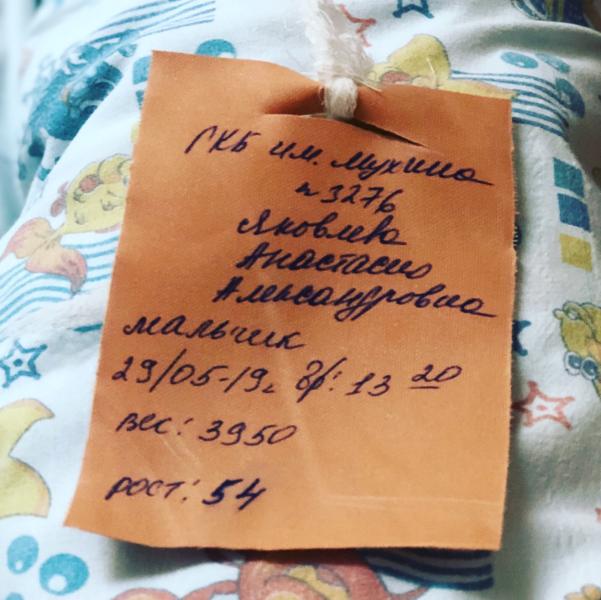 ГКБ им. Мухина
n 3276
Яковлева
Анастасия
Александровна
мальчик
29/05-19г. вр: 13 20
вес: 3950
рост: 54